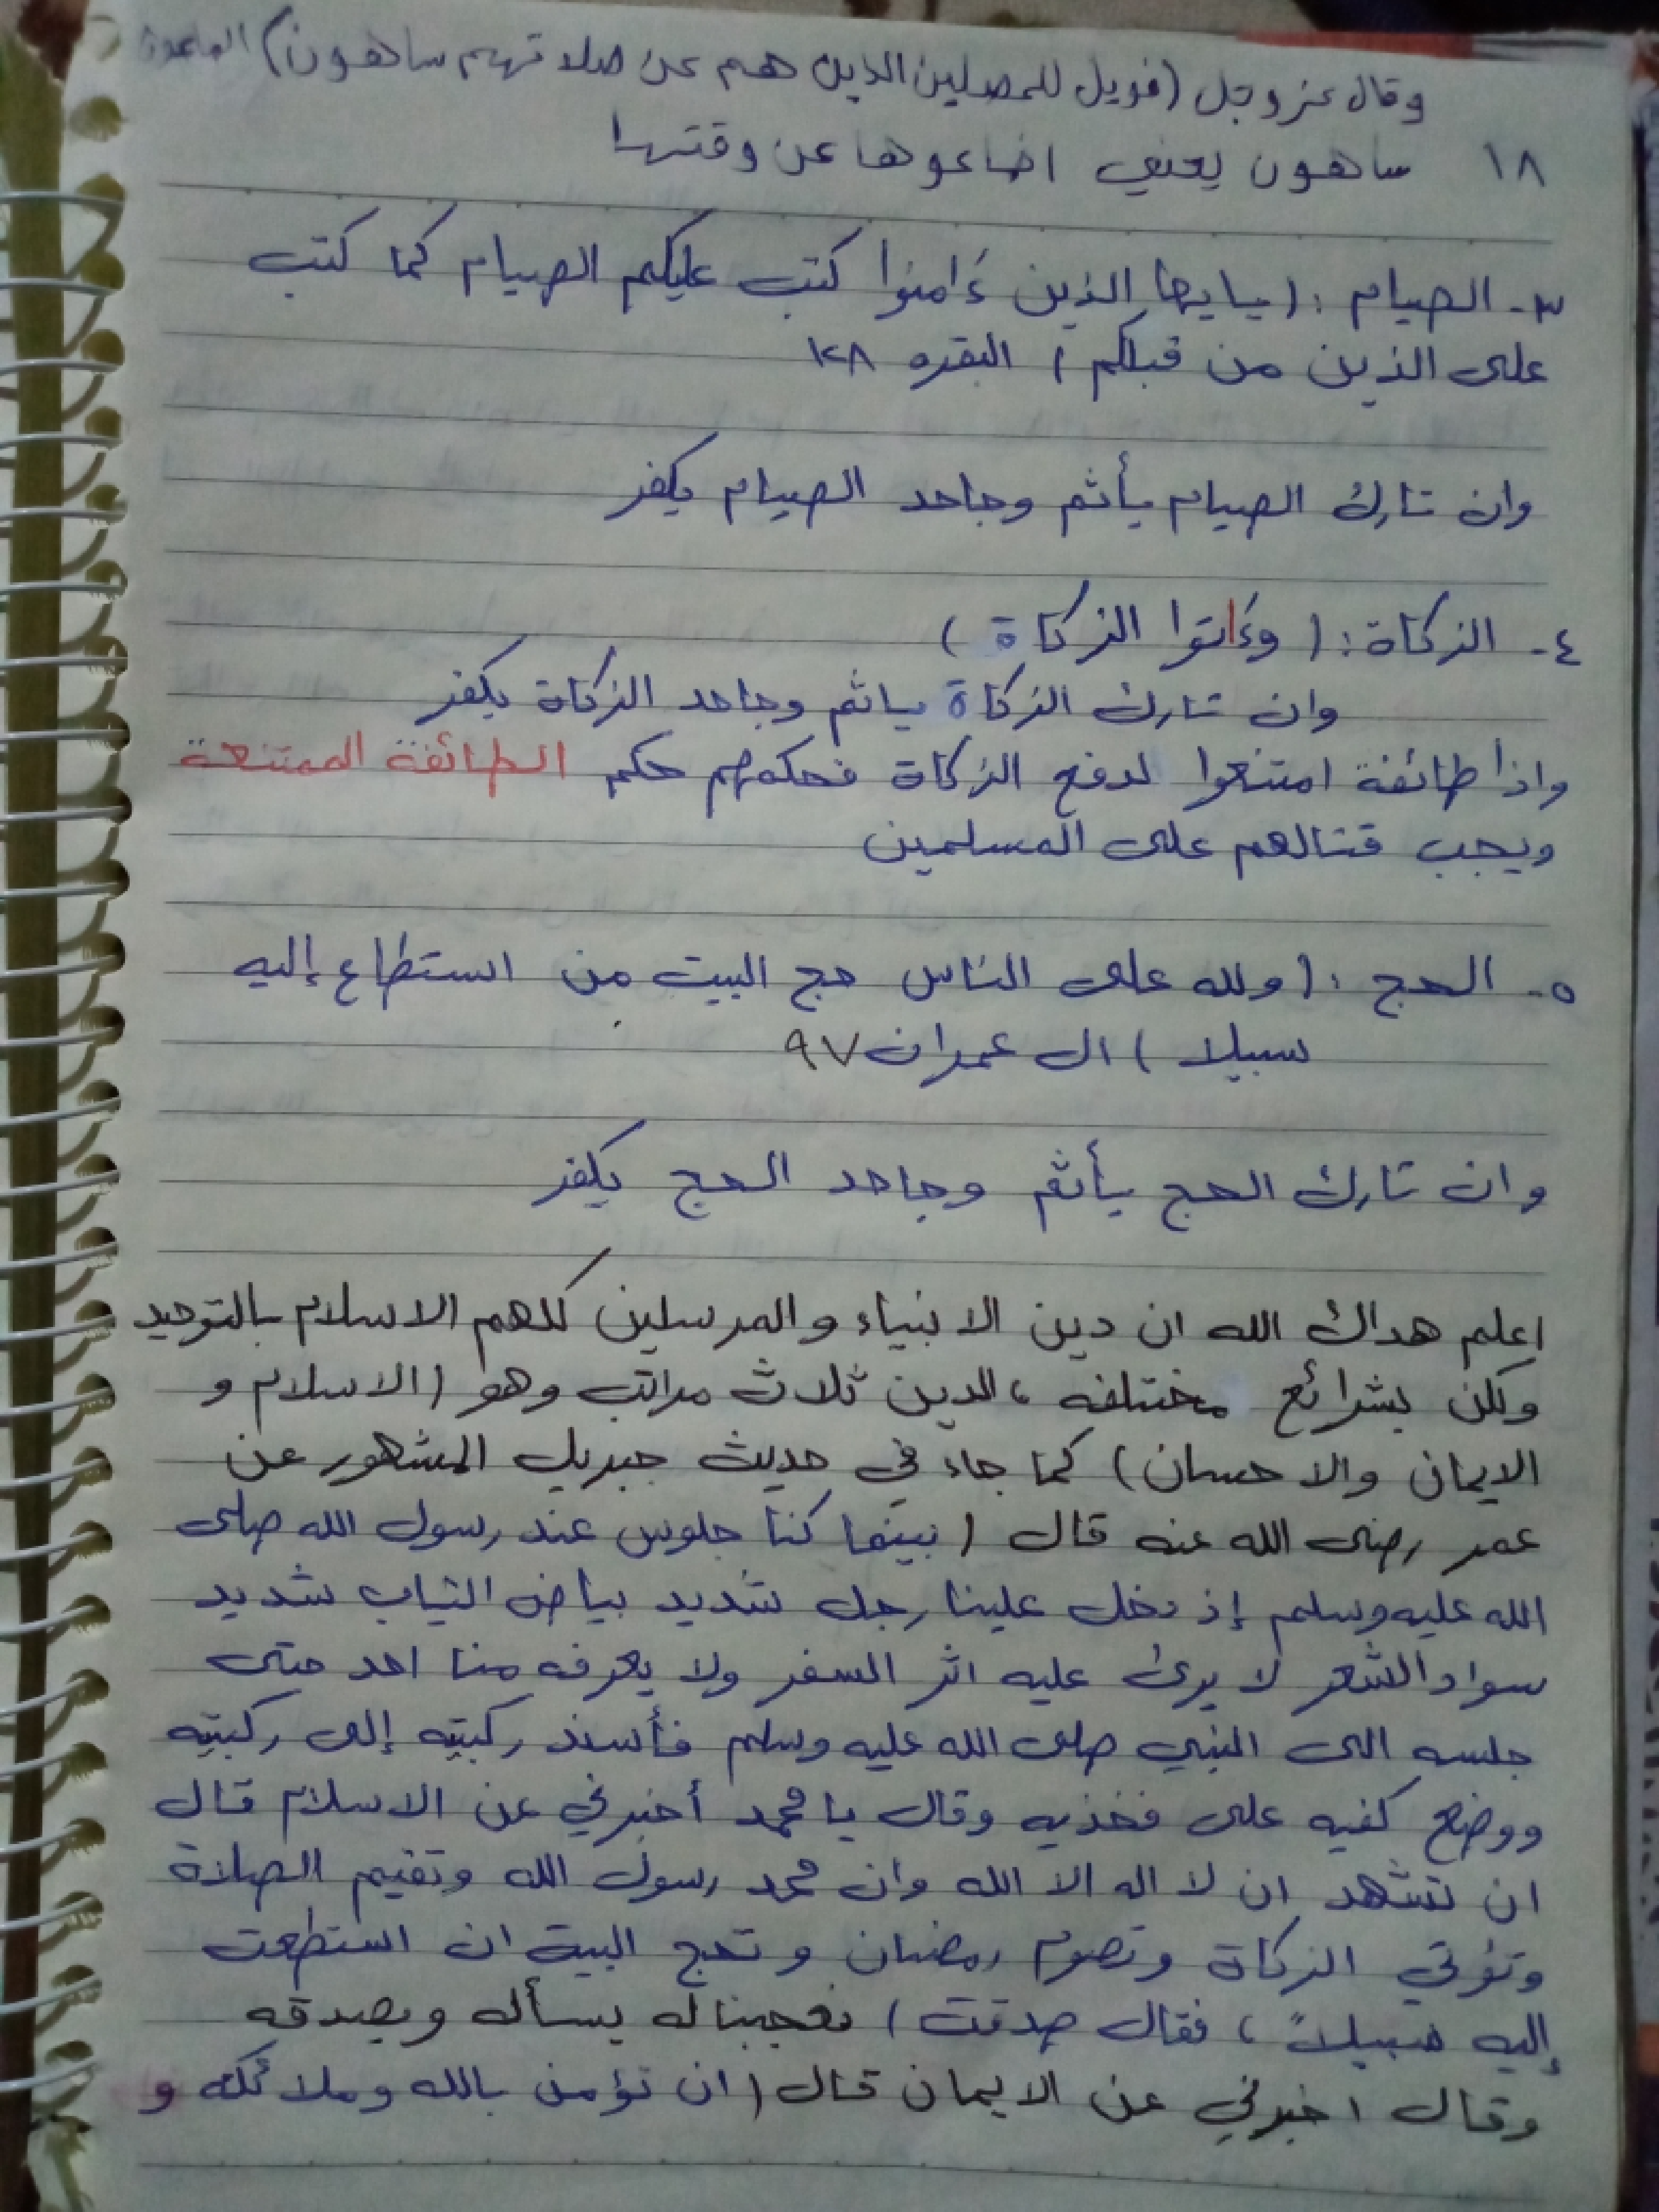 وقال عز وجل (فويل للمصلين الذين هم عن صلاتهم ساهون) الماعون
١٨ ساهون يعني اضاعوها عن وقتها
٣- الصيام : (يايها الذين ءَامنوا كتب عليكم الصيام كما كتب
على الذين من قبلكم) البقره ١٢٨
وان تارك الصيام يأثم وجاحد الصيام يكفر
٤- الزكاة : (وءَاتوا الزكاة)
وان تارك الزكاة ياثم وجاحد الزكاة يكفر
واذا طائفة امتنعوا لدفع الزكاة فحكمهم حكم الطائفة الممتنعة
ويجب قتالهم على المسلمين
٥- الحج : (ولله على الناس حج البيت من استطاع إليه
سبيلا) ال عمران ٩٧
وان تارك الحج يأثم وجاحد الحج يكفر
اعلم هداك الله ان دين الانبياء والمرسلين كلهم الاسلام بالتوحيد
ولكن بشرائع مختلفه ، الدين ثلاث مراتب وهو (الاسلام و
الايمان والاحسان) كما جاء في حديث جبريل المشهور عن
عمر رضى الله عنه قال (بينما كنا جلوس عند رسول الله صلى
الله عليه وسلم إذ دخل علينا رجل شديد بياض الثياب شديد
سواد الشعر لا يرى عليه اثر السفر ولا يعرفه منا احد حتى
جلسه الى النبي صلى الله عليه وسلم فأسند ركبتيه إلى ركبتيه
ووضع كفيه على فخذيه وقال يا محمد أخبرني عن الاسلام قال
ان تشهد ان لا اله الا الله وان محمد رسول الله وتقيم الصلاة
وتؤتي الزكاة وتصوم رمضان وتحج البيت ان استطعت
إليه سبيلاً ، فقال صدقت) فعجبنا له يسأله ويصدقه
وقال اخبرني عن الايمان قال (ان تؤمن بالله وملائكته و